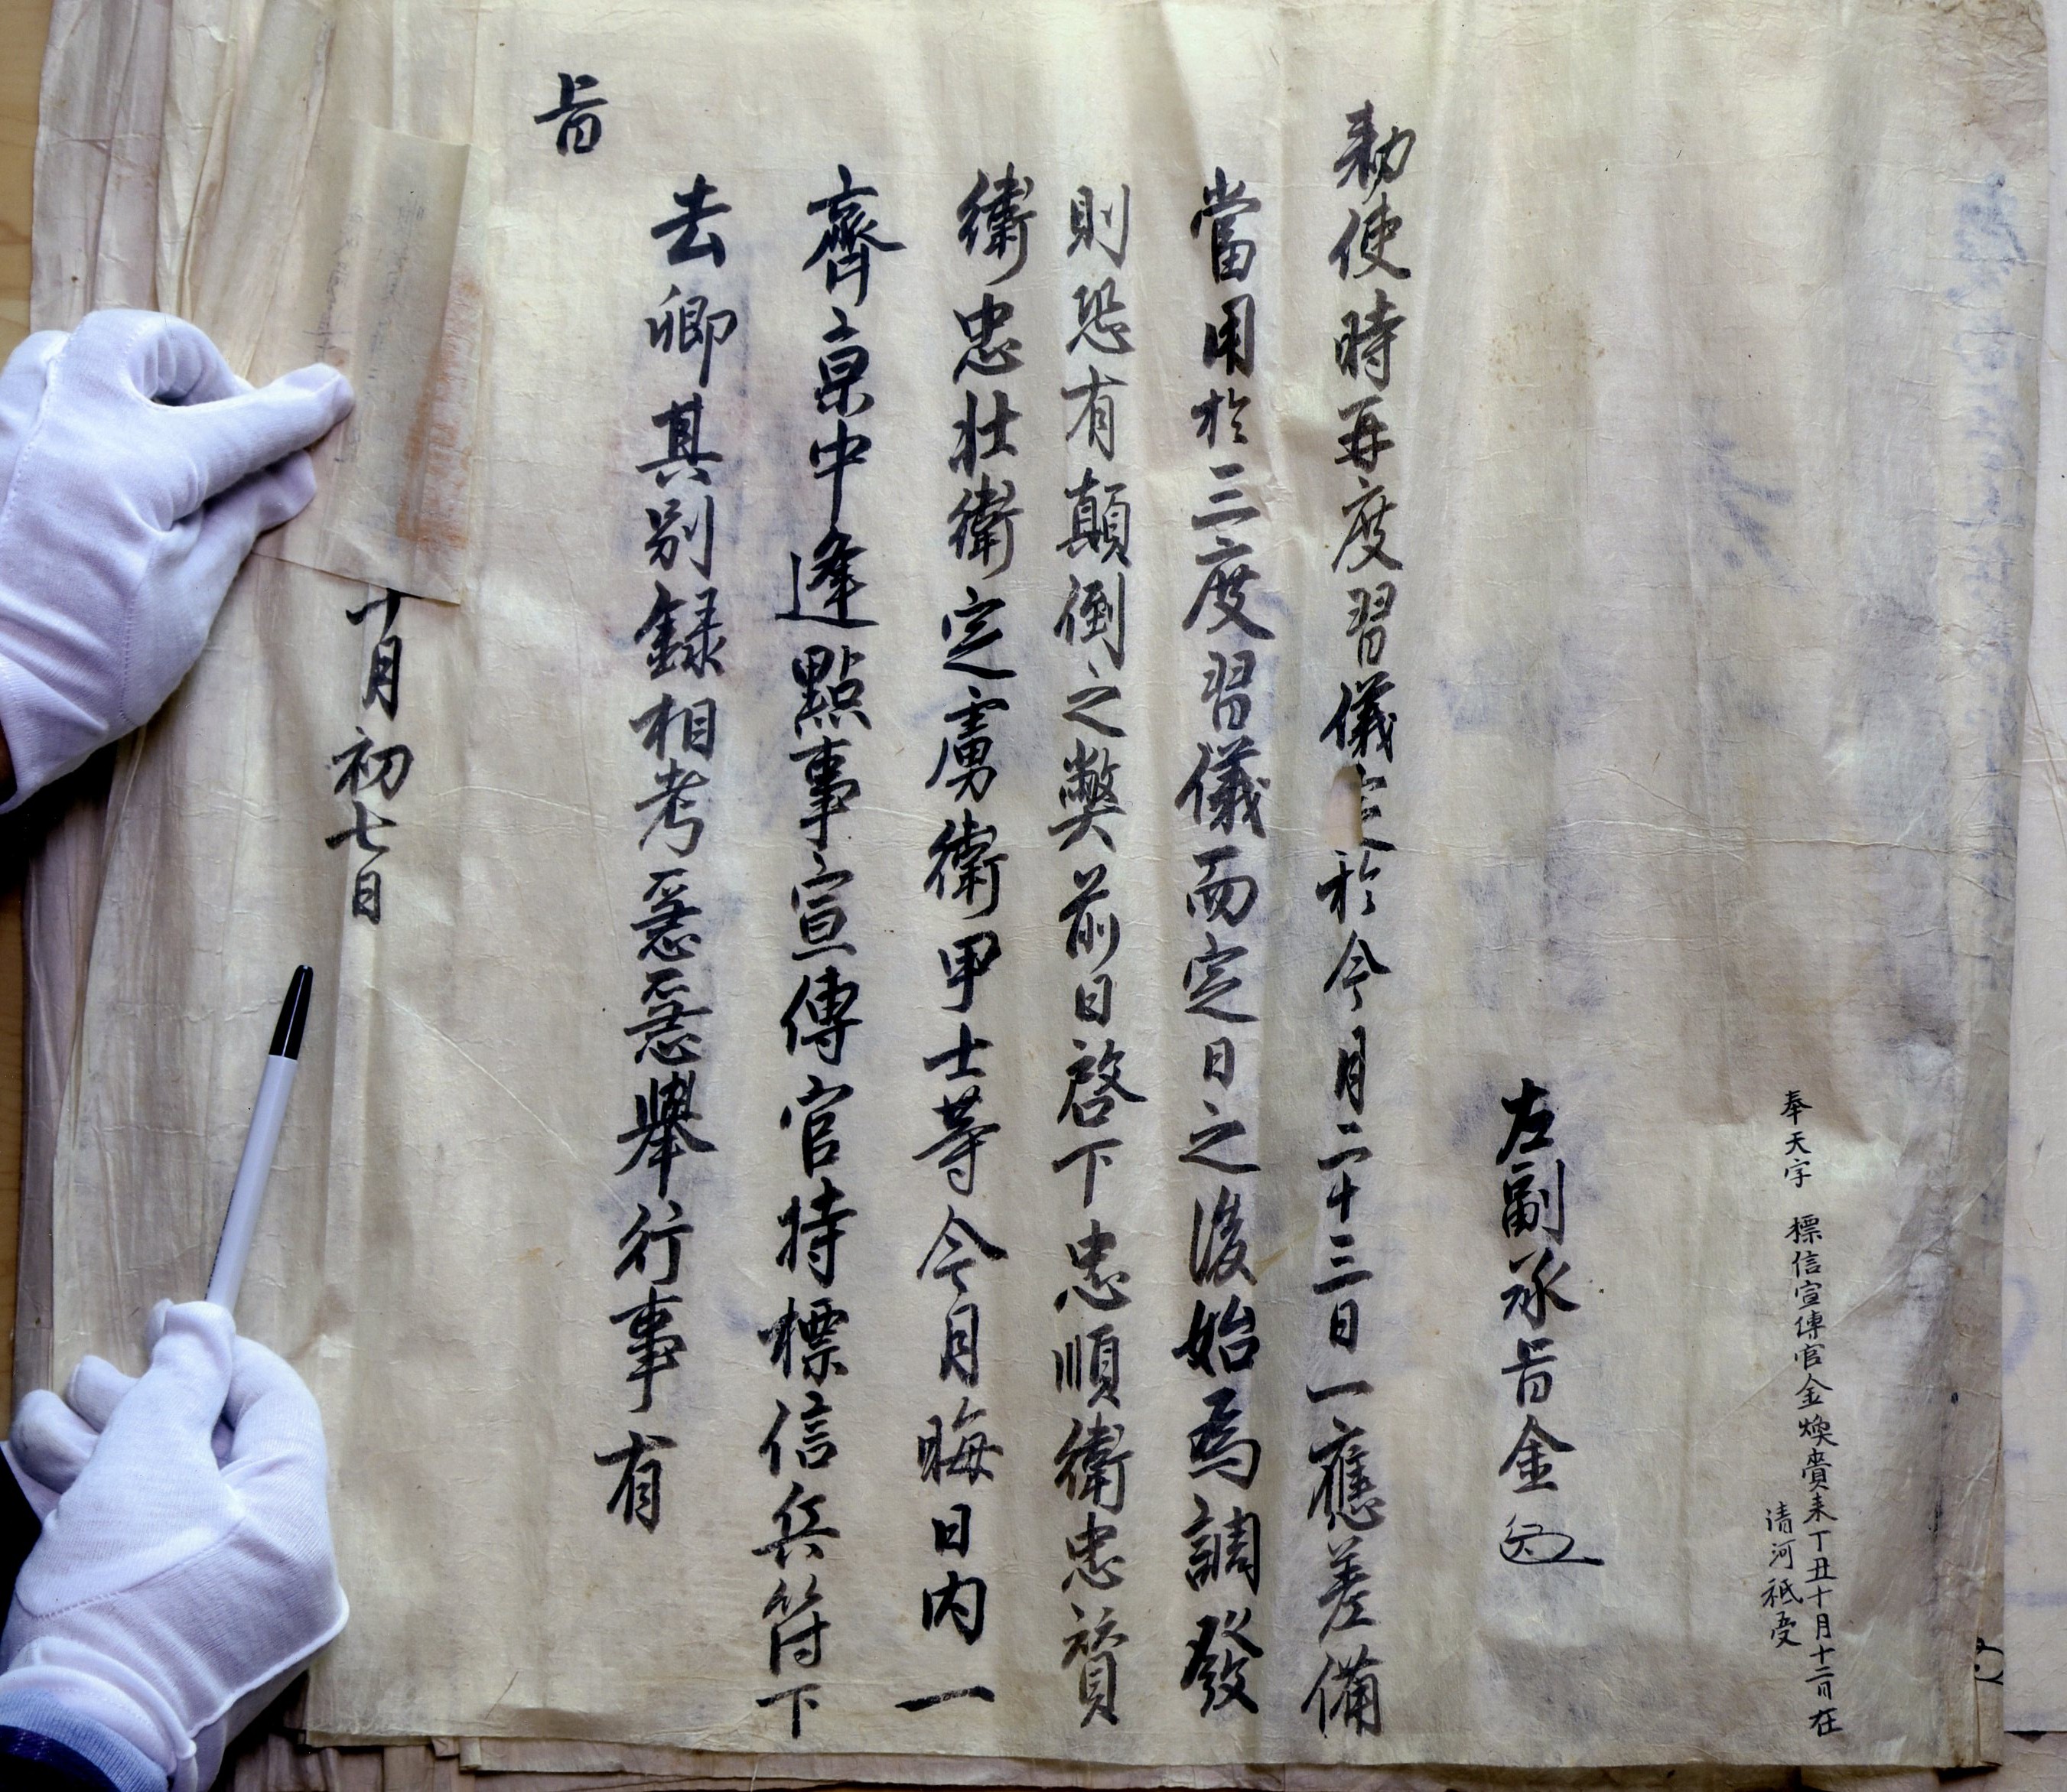 奉天字 標信宣傳官金煥賫来丁丑十月十二日在
清河祗受
左副承旨金
勅使時再度習儀定於今月二十三日一應差備
當用於三度習儀而定日之後始爲調發
則恐有顛倒之弊前日啓下忠順衛忠贊
衛忠壯衛定虜衛甲士等今月晦日內一
齊京中逢點事宣傳官持標信兵符下
去卿其別錄相考惡惡舉行事有
旨
十月初七日